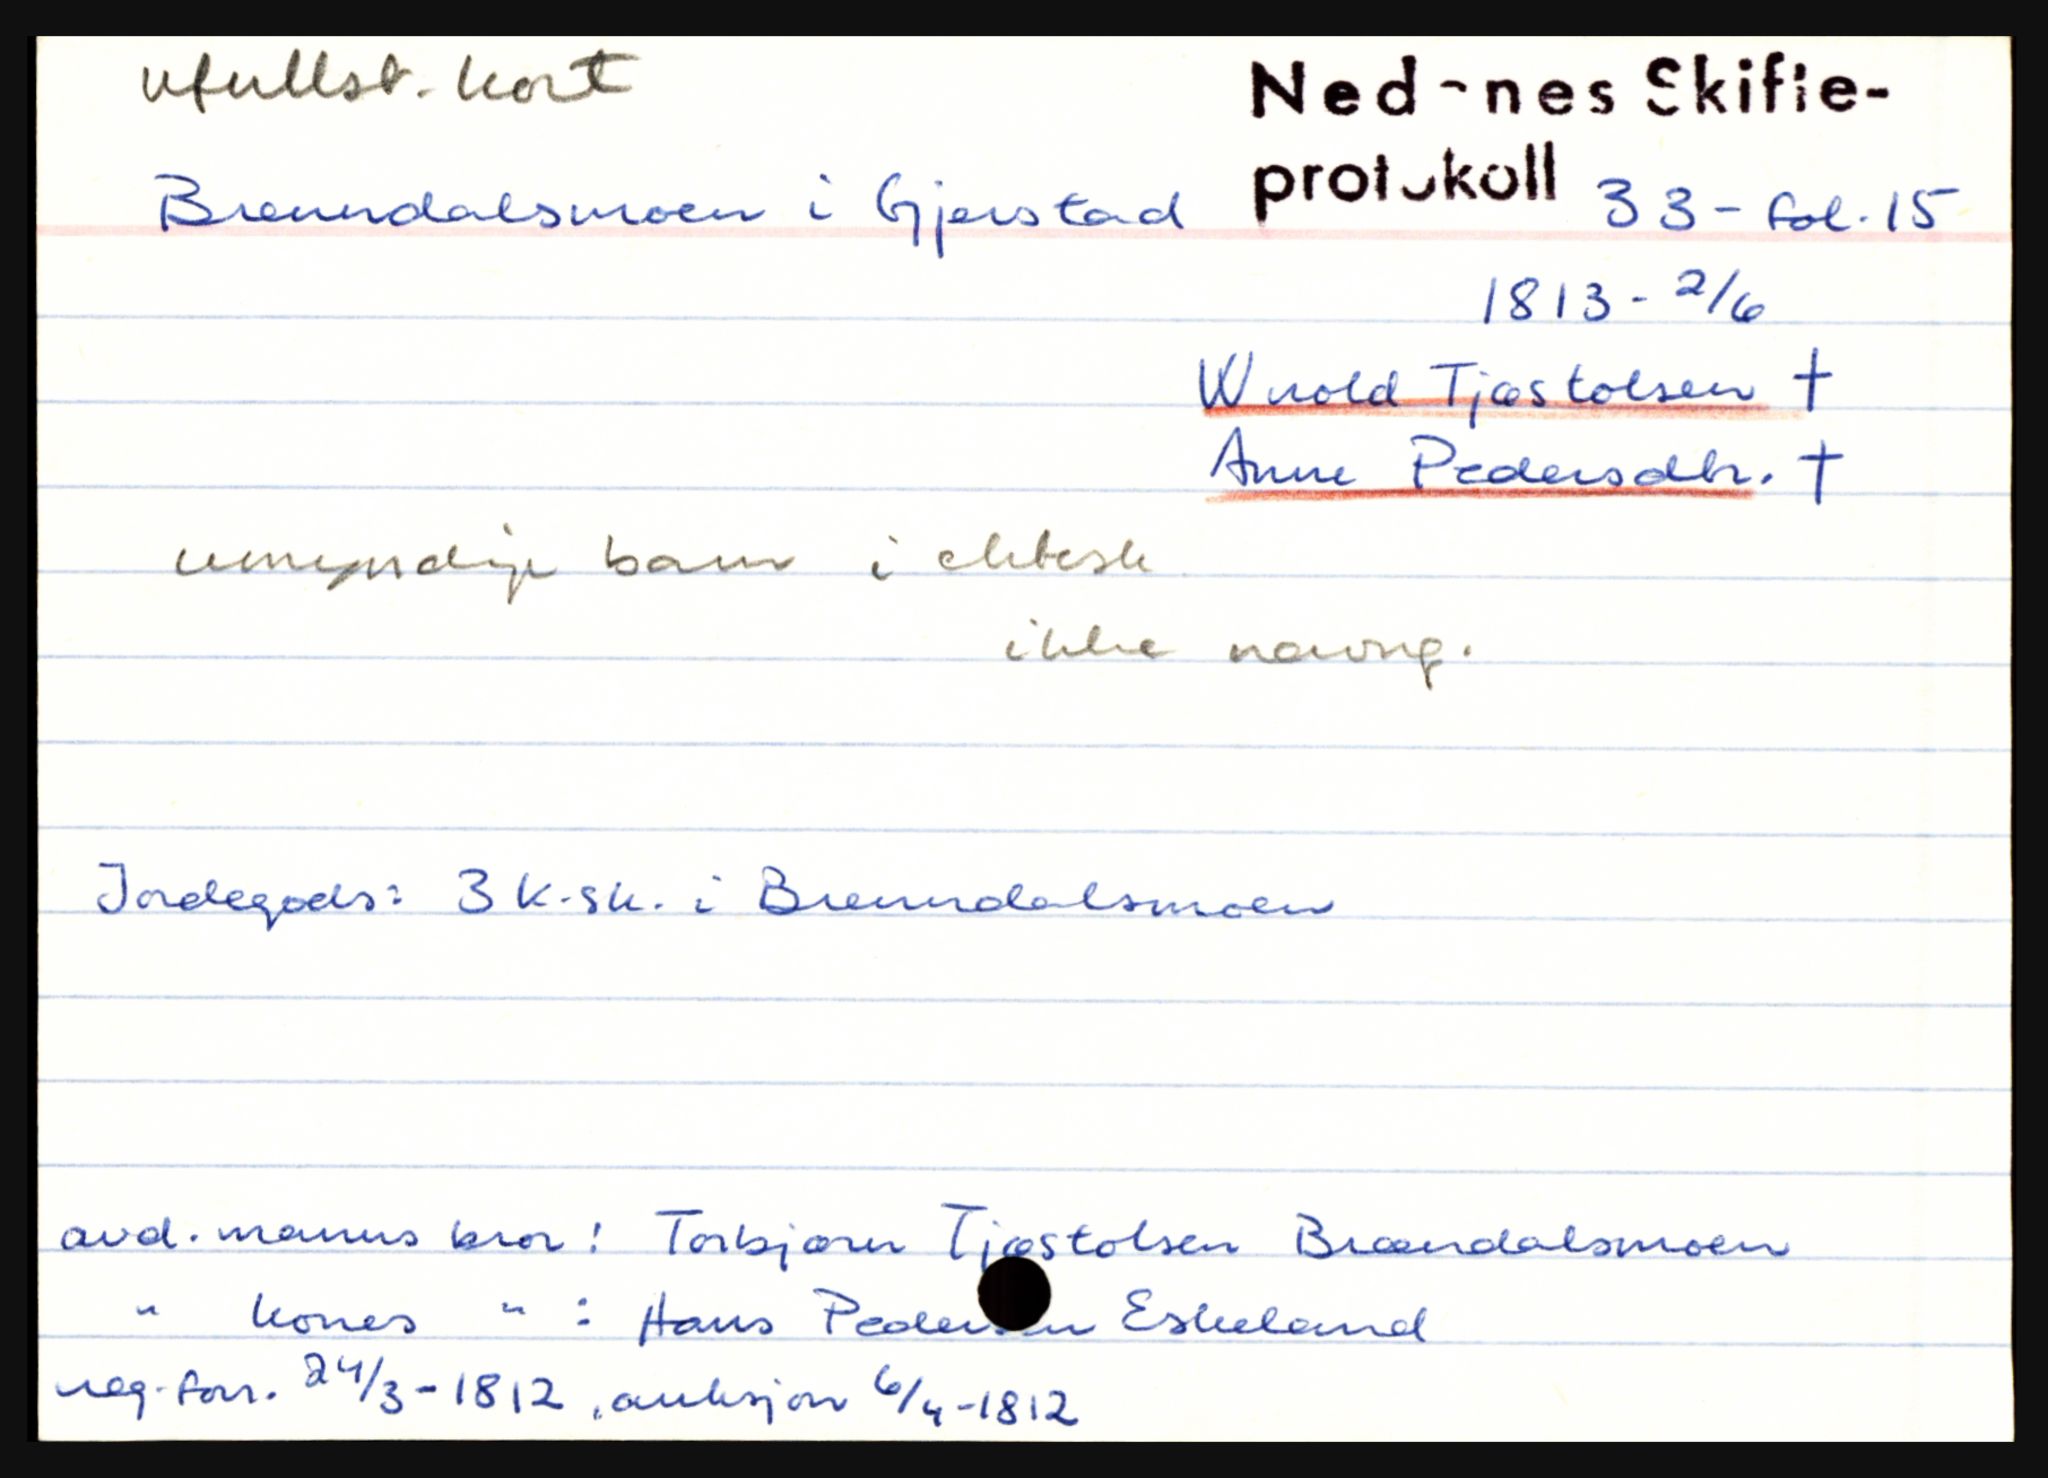 ufullst. kort
Nedenes Skifte-
protokoll 33 - fol. 15
Brenndalsmoen i Gjerstad
1813 - 2/6
Wrold Tjøstolsen †
Anne Pedersdtr. †
umyndige barn i ektesk.
ikke navng.
Jordegods: 3 k.sk. i Brenndalsmoen
avd. manns bror: Torbjørn Tjøstolsen Brændalsmoen
" kones " : Hans Pedersen Eskeland
reg. forr. 24/3 - 1812, auksjon 6/4 - 1812